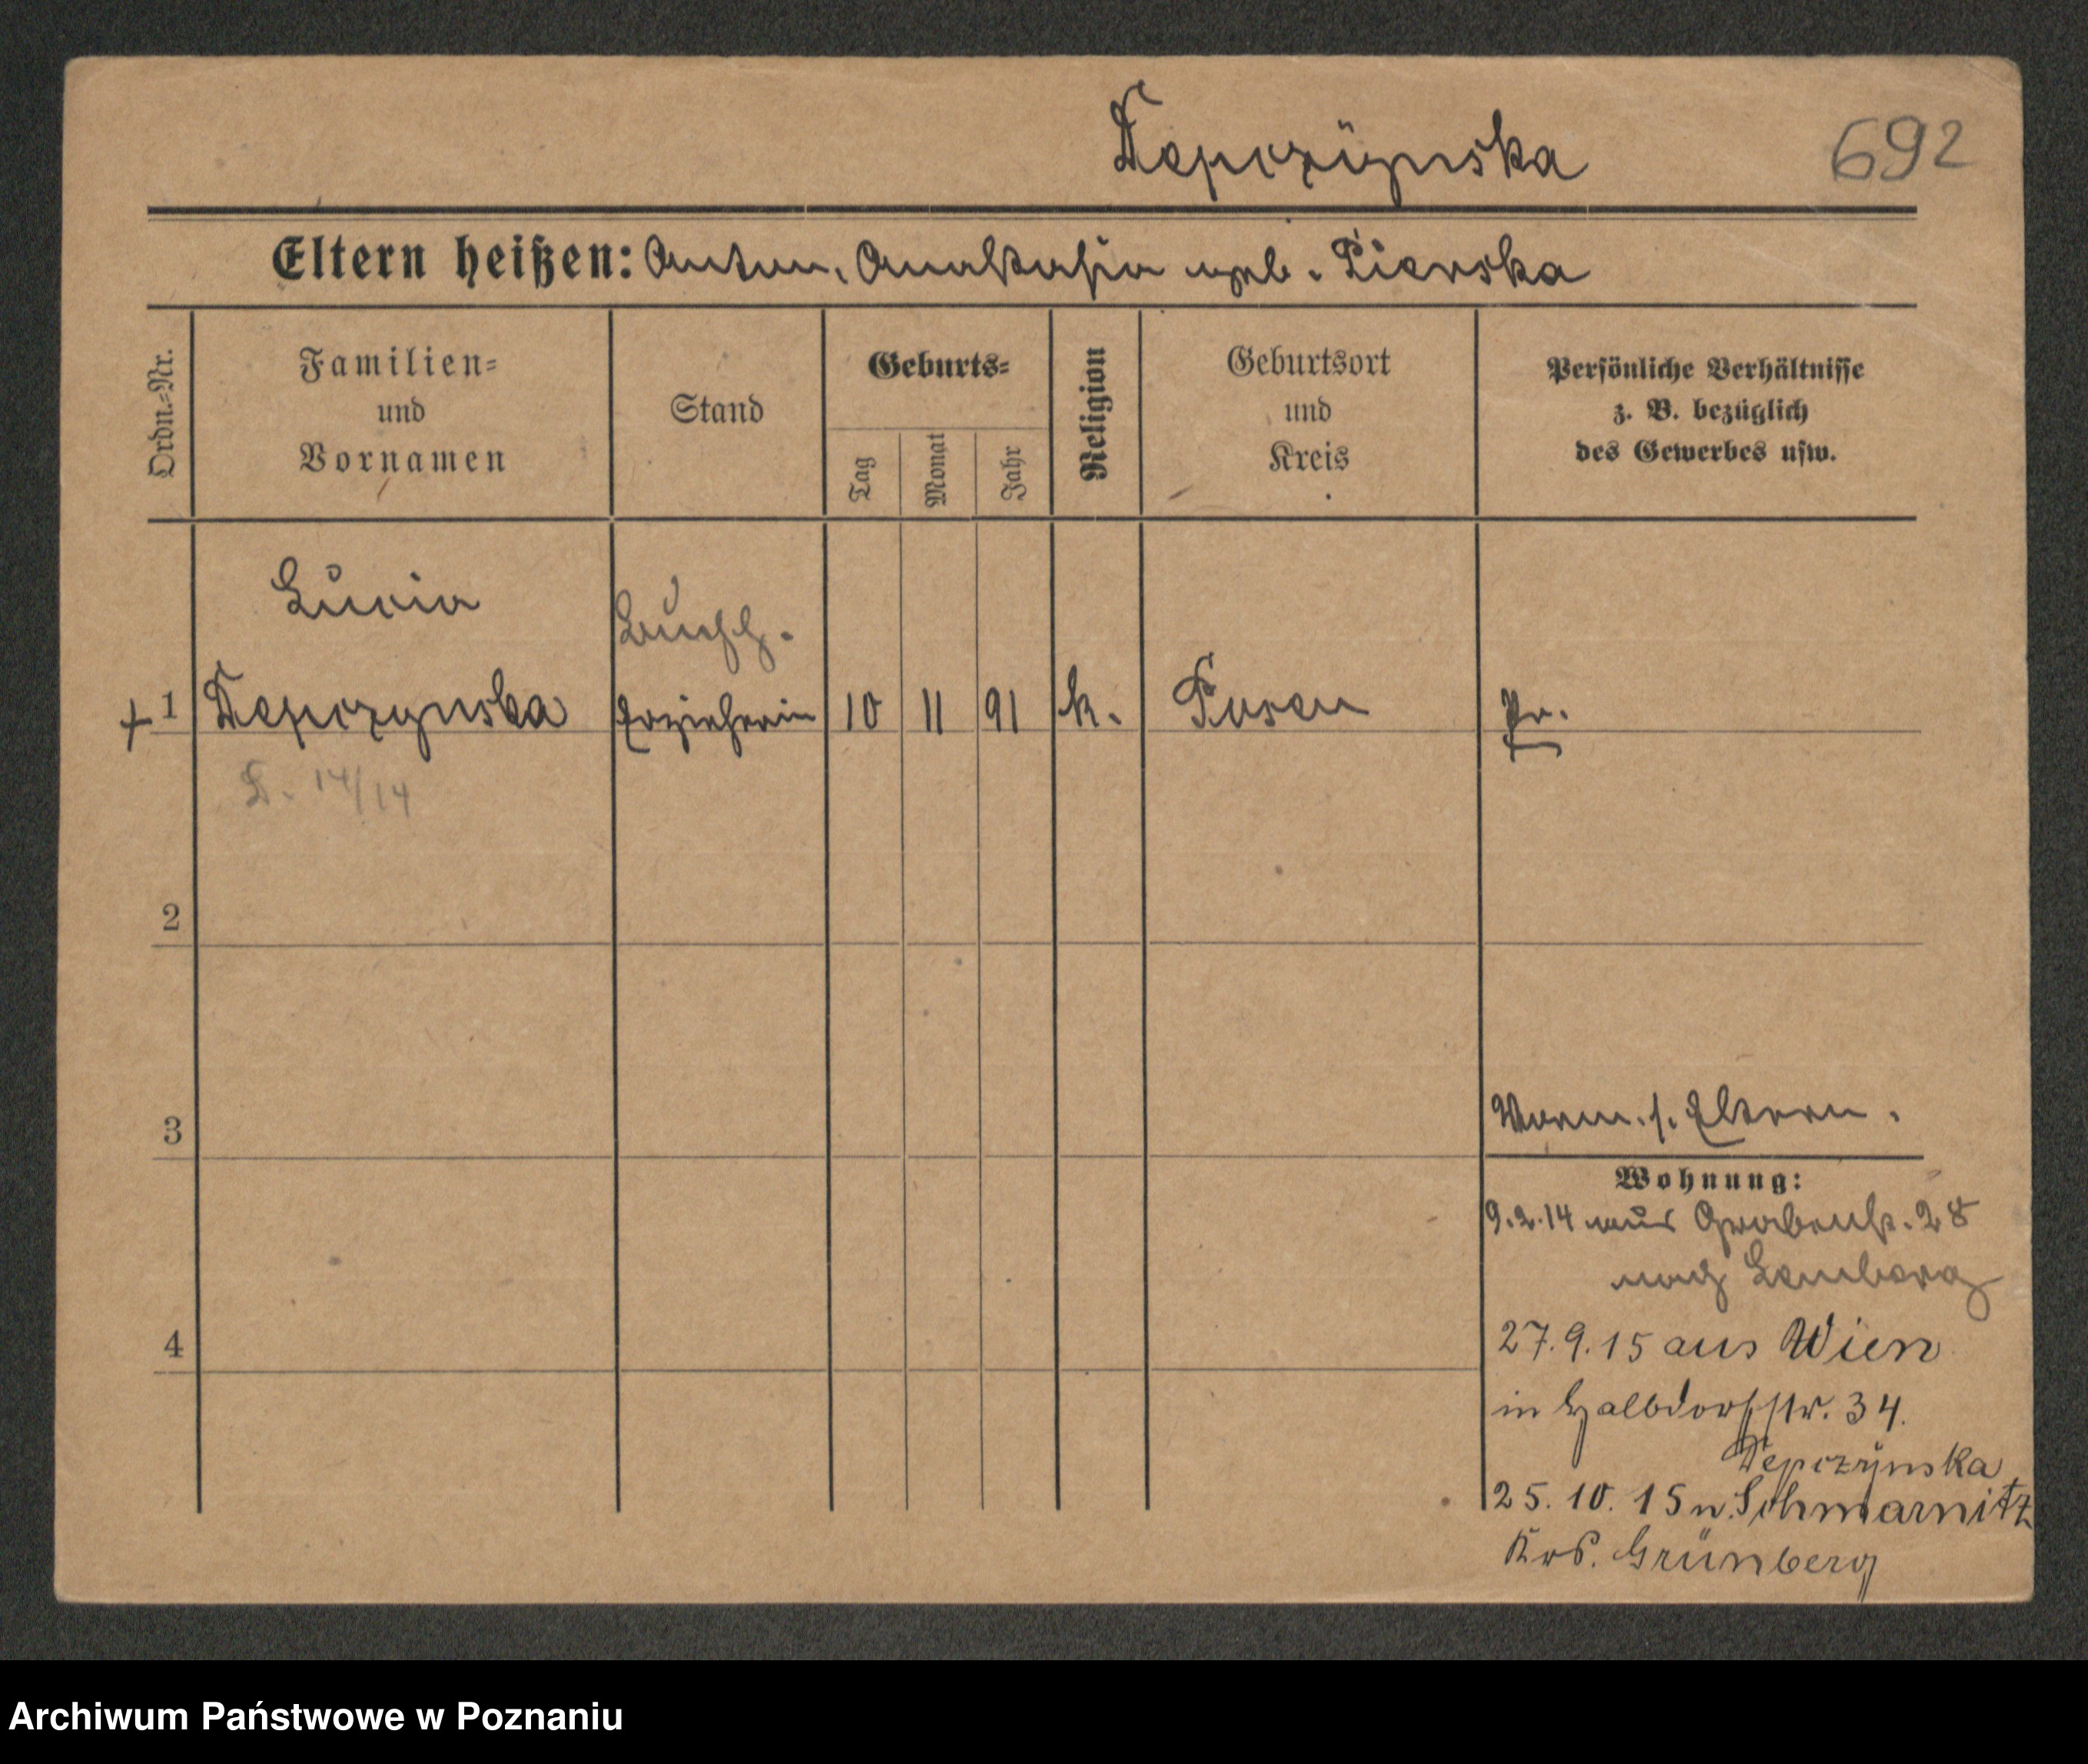 Depczÿnska 692
Eltern heißen: Anton, Anastasia geb. Pierska
Ordn.-Nr.
Familien-
und
Vornamen
Stand
Geburts-
Tag
Monat
Jahr
Religion
Geburtsort
und
Kreis
Persönliche Verhältnisse
z. B. bezüglich
des Gewerbes usw.
Lucia
Buchh.
+ 1 Depczynska Erzieherin 10 11 91 k. Posen Pr.
14/14
2
3
Vorm. s. Eltern.
Wohnung:
9.2.14 aus Grabenstr. 28
nach Lemberg
4
27.9.15 aus Wien
in Halbdorfstr. 34.
Depczÿnska
25.10.15 n. Schmarnitz
Krs. Grünberg
Archiwum Państwowe w Poznaniu